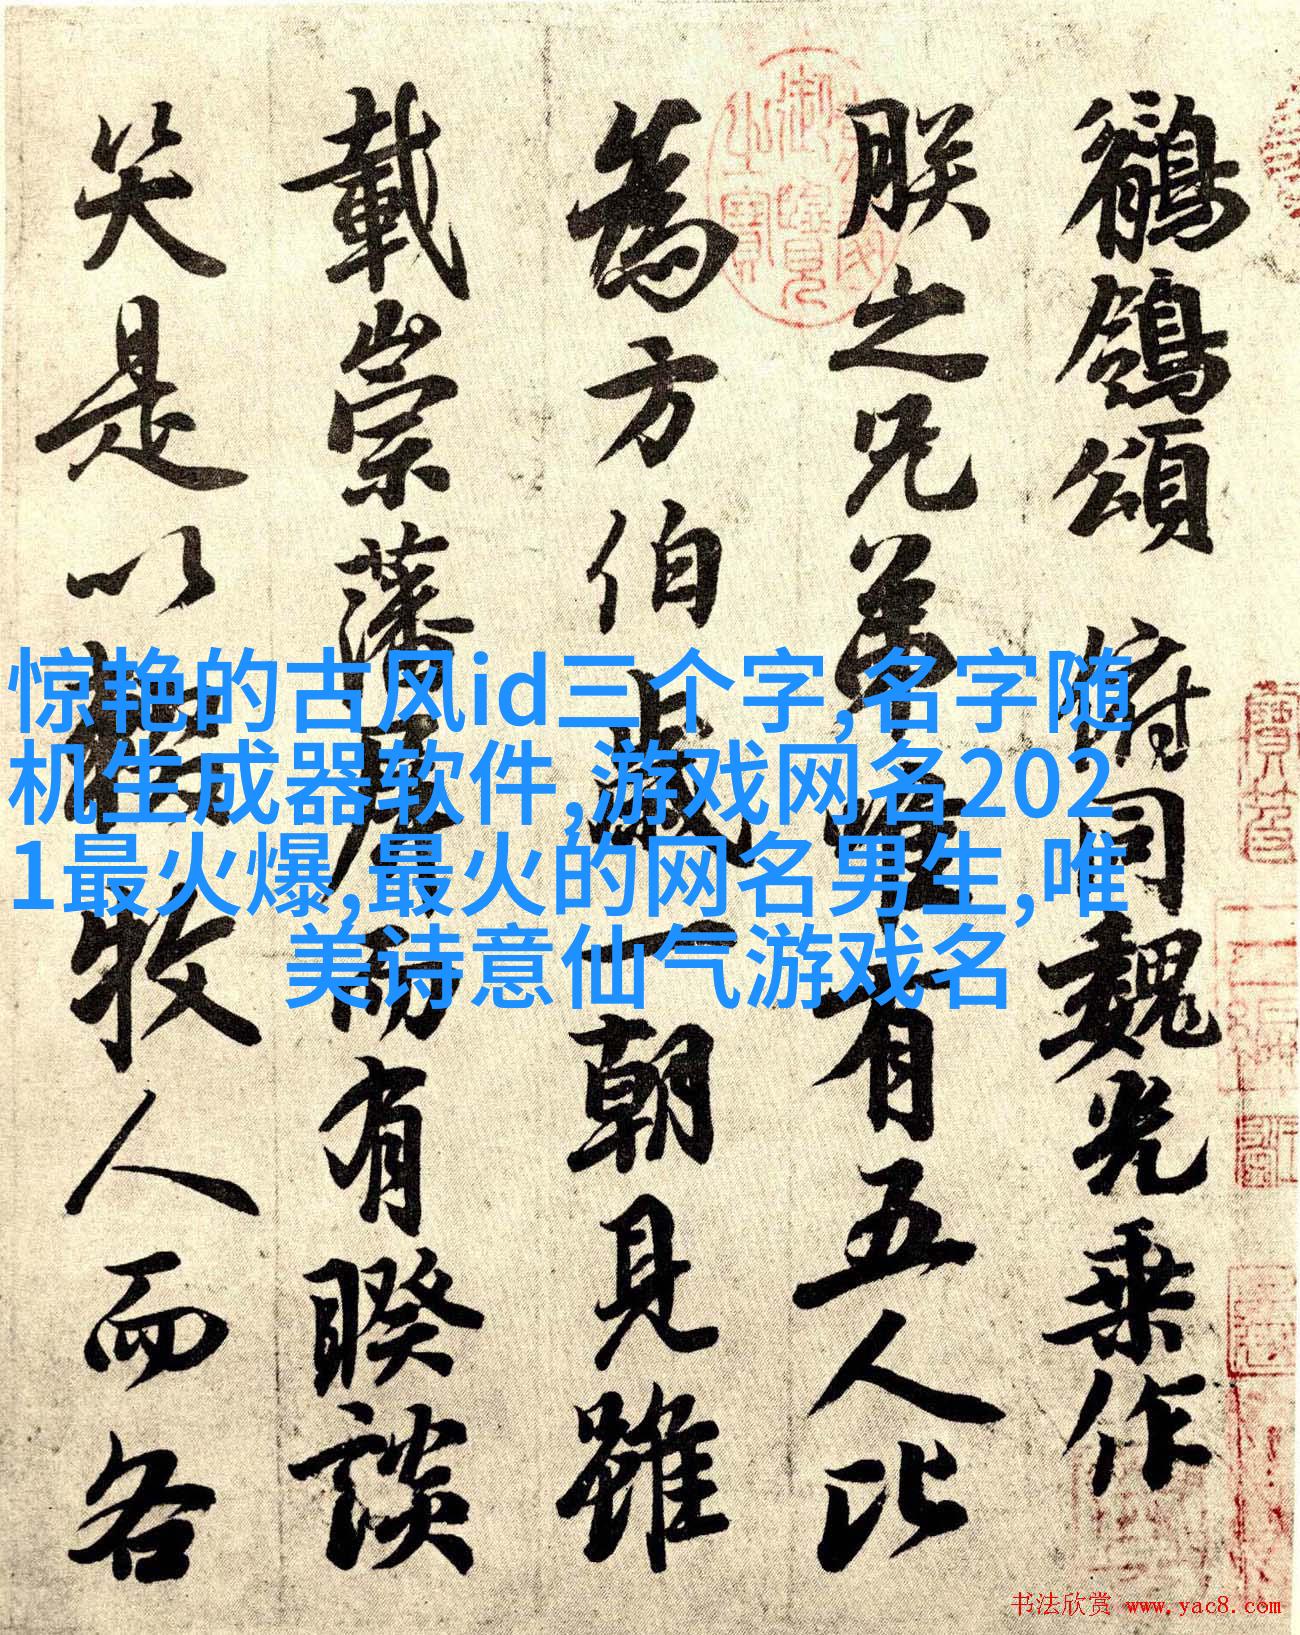 鶺鴒頌 俯同魏光乘作
朕之兄弟唯有五人比
為方伯歲一朝見雖
載崇藩屏而有睽談
笑是以輟牧人而各
惊艳的古风id三个字,名字随
机生成器软件,游戏网名202
1最火爆,最火的网名男生,唯
美诗意仙气游戏名
书法欣赏 www.yac8.com